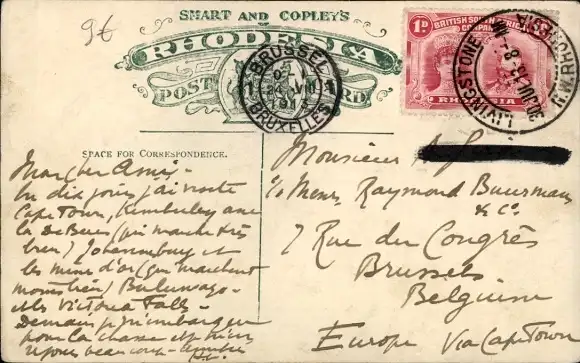 9f
SMART AND COPLEY'S
RHODESIA
POST CARD
BRUSSEL
24 VIII
1913
BRUXELLES
1D
BRITISH SOUTH AFRICA
COMPANY
RHODESIA
LIVINGSTONE
SPACE FOR CORRESPONDENCE.
Mon cher Ami -
En dix jours j'ai visité
Cape Town, Kimberley avec
la De Beers (qui marche très
bien) Johannesburg et
les mines d'or (qui marchent
moins bien) Buluwayo -
et les Victoria Falls -
Demain je m'embarque
pour la chasse et
Monsieur
c/o Raymond Buurmans
& Co.
7 Rue du Congrès
Brussels
Belgium
Europe Via Cape Town